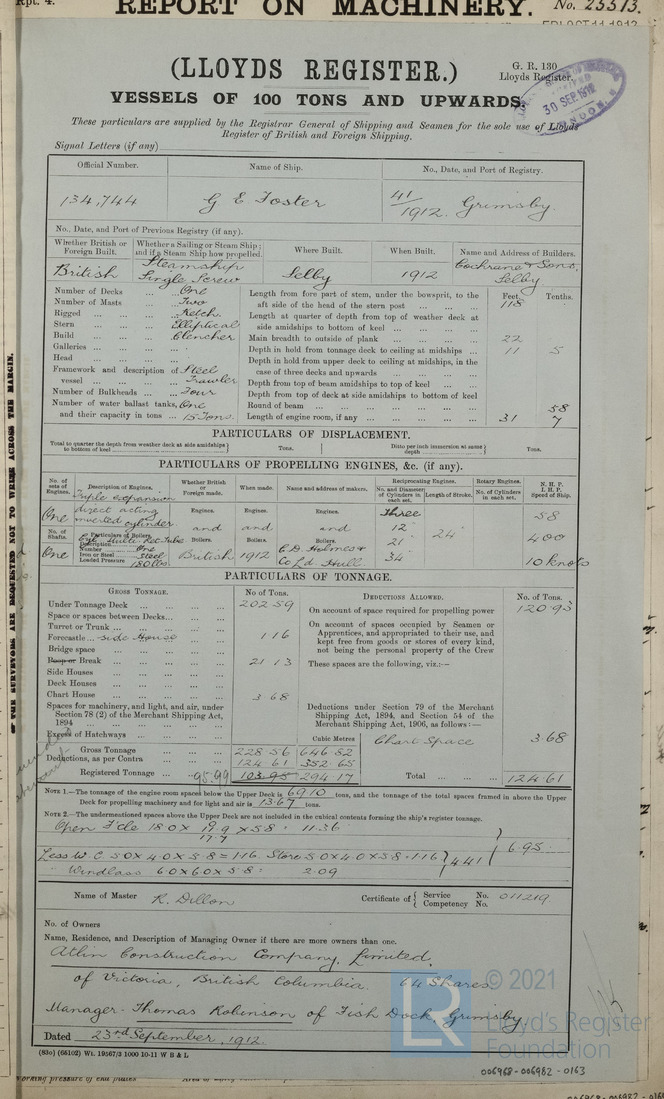 Rpt. 4.
REPORT ON MACHINERY. No. 25513.
FRI. OCT. 11 1912
(LLOYDS REGISTER.)
G. R. 130
Lloyds Register.
VESSELS OF 100 TONS AND UPWARDS.
30 SEP. 1912
These particulars are supplied by the Registrar General of Shipping and Seamen for the sole use of Lloyds
Register of British and Foreign Shipping.
Signal Letters (if any)
Official Number. Name of Ship. No., Date, and Port of Registry.
134,744 G E Foster 41/1912. Grimsby.
No., Date, and Port of Previous Registry (if any).
Whether British or Foreign Built. Whether a Sailing or Steam Ship; and if a Steam Ship how propelled. Where Built. When Built. Name and Address of Builders.
British Steamship Single Screw Selby 1912 Cochrane & Sons, Selby
Number of Decks ... One
Number of Masts ... Two
Rigged ... Ketch.
Stern ... Elliptical
Build ... Clencher
Galleries ...
Head ...
Framework and description of vessel ... Steel Trawler
Number of Bulkheads ... Four
Number of water ballast tanks, One
and their capacity in tons ... 15 Tons.
Feet. Tenths.
Length from fore part of stem, under the bowsprit, to the
aft side of the head of the stern post ... 118
Length at quarter of depth from top of weather deck at
side amidships to bottom of keel ...
Main breadth to outside of plank ... 22
Depth in hold from tonnage deck to ceiling at midships ... 11 5
Depth in hold from upper deck to ceiling at midships, in the
case of three decks and upwards ...
Depth from top of beam amidships to top of keel ...
Depth from top of deck at side amidships to bottom of keel
Round of beam ... 58
Length of engine room, if any ... 31 7
PARTICULARS OF DISPLACEMENT.
Total to quarter the depth from weather deck at side amidships to bottom of keel Tons. Ditto per inch immersion at same depth Tons.
PARTICULARS OF PROPELLING ENGINES, &c. (if any).
No. of sets of Engines. Description of Engines. Whether British or Foreign made. When made. Name and address of makers. Reciprocating Engines. Rotary Engines. N. H. P. I. H. P. Speed of Ship.
No. and Diameter of Cylinders in each set. Length of Stroke. No. of Cylinders in each set.
One Triple expansion direct acting inverted cylinder
Engines. Engines. Engines. Three
and and and 12" 21" 34" 24" 58
No. of Shafts. Particulars of Boilers. Boilers. Boilers. Boilers. 400
Description
Number One
Iron or Steel Steel
Loaded Pressure 180 lbs
One British 1912 C. D. Holmes & Co Ld. Hull 10 knots
PARTICULARS OF TONNAGE.
GROSS TONNAGE. No of Tons. DEDUCTIONS ALLOWED. No. of Tons.
Under Tonnage Deck ... 202.59
Space or spaces between Decks ...
Turret or Trunk ...
Forecastle ... side House 1.16
Bridge space
Poop or Break ... 21.13
Side Houses
Deck Houses
Chart House ... 3.68
Spaces for machinery, and light, and air, under
Section 78 (2) of the Merchant Shipping Act,
1894 ...
Excess of Hatchways ... Cubic Metres
Gross Tonnage ... 228.56 646.82
Deductions, as per Contra ... 124.61 352.65
Registered Tonnage ... 95.99 103.95 294.17
On account of space required for propelling power 120.93
On account of spaces occupied by Seamen or
Apprentices, and appropriated to their use, and
kept free from goods or stores of every kind,
not being the personal property of the Crew
These spaces are the following, viz.:—
Deductions under Section 79 of the Merchant
Shipping Act, 1894, and Section 54 of the
Merchant Shipping Act, 1906, as follows:—
Chart Space 3.68
Total ... 124.61
NOTE 1.—The tonnage of the engine room spaces below the Upper Deck is 69.10 tons, and the tonnage of the total spaces framed in above the Upper
Deck for propelling machinery and for light and air is 13.67 tons.
NOTE 2.—The undermentioned spaces above the Upper Deck are not included in the cubical contents forming the ship's register tonnage.
Open F'cle 18.0 x 19.9 x 5.8 = 11.36
17.7
Less W C 5.0 x 4.0 x 5.8 = 1.16. Store 5.0 x 4.0 x 5.8 = 1.16 } 4.41 } 6.95
Windlass 6.0 x 6.0 x 5.8 = 2.09
Name of Master R. Dillon Certificate of { Service No. Competency No. 011219.
No. of Owners
Name, Residence, and Description of Managing Owner if there are more owners than one.
Atlin Construction Company, Limited.
of Victoria, British Columbia. 64 Shares
Manager - Thomas Robinson of Fish Dock, Grimsby
Dated 23rd September, 1912.
(83o) (66102) Wt. 19567/3 1000 10-11 W B & L
© 2021
Lloyd's Register
Foundation
LR
006968-006982-0163
OF THE SURVEYORS ARE REQUESTED NOT TO WRITE ACROSS THE MARGIN.
Working pressure of end plates